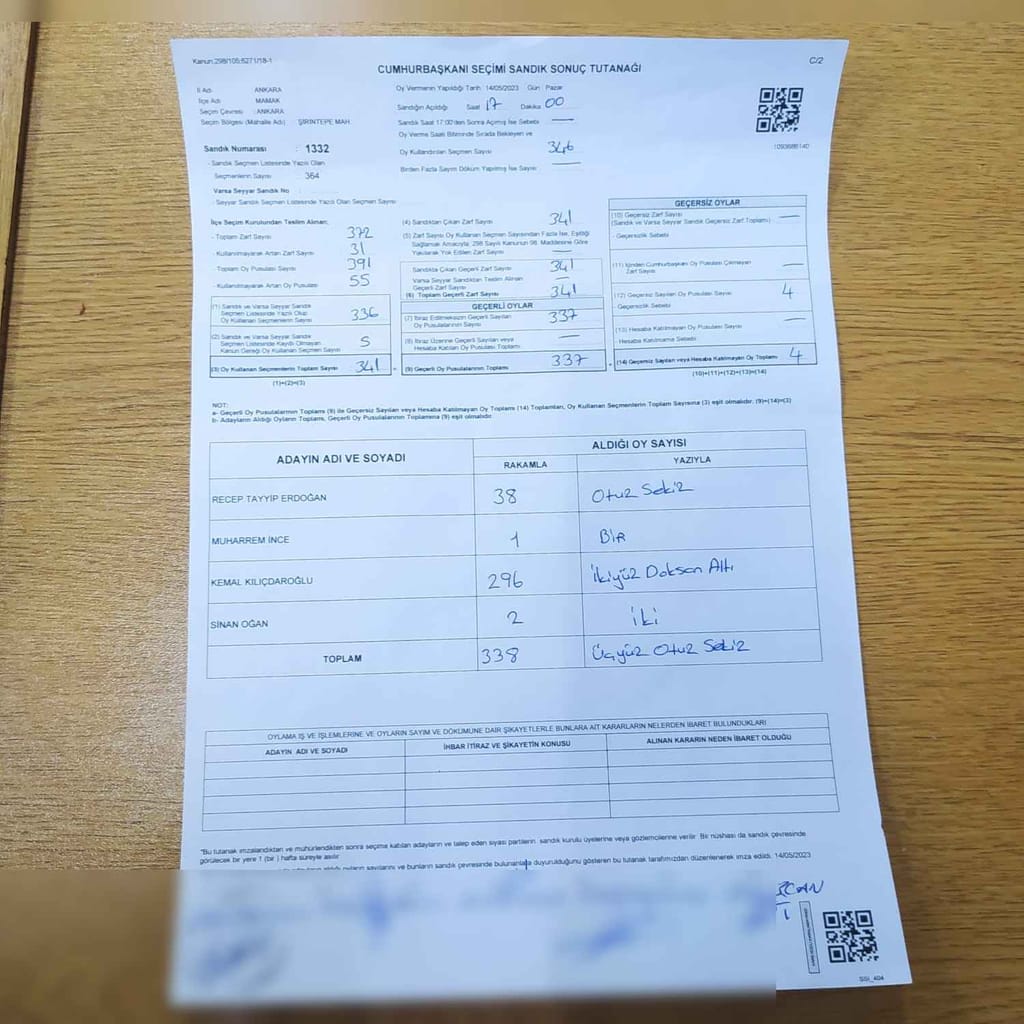 Kanun:298/105;6271/18-1
C/2
CUMHURBAŞKANI SEÇİMİ SANDIK SONUÇ TUTANAĞI
İl Adı : ANKARA
İlçe Adı : MAMAK
Seçim Çevresi : ANKARA
Seçim Bölgesi (Mahalle Adı) : ŞİRİNTEPE MAH.
Sandık Numarası : 1332
- Sandık Seçmen Listesinde Yazılı Olan
Seçmenlerin Sayısı : 364
Varsa Seyyar Sandık No :
- Seyyar Sandık Seçmen Listesinde Yazılı Olan Seçmen Sayısı
Oy Vermenin Yapıldığı Tarih 14/05/2023 Gün : Pazar
Sandığın Açıldığı Saat 17 Dakika 00
Sandık Saat 17:00'den Sonra Açılmış İse Sebebi —
Oy Verme Saati Bitiminde Sırada Bekleyen ve
Oy Kullandırılan Seçmen Sayısı 346
Birden Fazla Sayım Döküm Yapılmış İse Sayısı : —
1093688140
İlçe Seçim Kurulundan Teslim Alınan;
- Toplam Zarf Sayısı 372
- Kullanılmayarak Artan Zarf Sayısı 31
- Toplam Oy Pusulası Sayısı 391
- Kullanılmayarak Artan Oy Pusulası 55
(1) Sandık ve Varsa Seyyar Sandık
Seçmen Listesinde Yazılı Olup
Oy Kullanan Seçmenlerin Sayısı 336
(2) Sandık ve Varsa Seyyar Sandık
Seçmen Listesinde Kayıtlı Olmayan
Kanun Gereği Oy Kullanan Seçmen Sayısı 5
(3) Oy Kullanan Seçmenlerin Toplam Sayısı 341
(1)+(2)=(3)
(4) Sandıktan Çıkan Zarf Sayısı 341
(5) Zarf Sayısı Oy Kullanan Seçmen Sayısından Fazla İse, Eşitliği
Sağlamak Amacıyla; 298 Sayılı Kanunun 98. Maddesine Göre
Yakılarak Yok Edilen Zarf Sayısı —
Sandıkta Çıkan Geçerli Zarf Sayısı 341
Varsa Seyyar Sandıktan Teslim Alınan
Geçerli Zarf Sayısı —
(6) Toplam Geçerli Zarf Sayısı 341
GEÇERLİ OYLAR
(7) İtiraz Edilmeksizin Geçerli Sayılan
Oy Pusulalarının Sayısı 337
(8) İtiraz Üzerine Geçerli Sayılan veya
Hesaba Katılan Oy Pusulası Toplamı —
(9) Geçerli Oy Pusulalarının Toplamı 337
GEÇERSİZ OYLAR
(10) Geçersiz Zarf Sayısı —
(Sandık ve Varsa Seyyar Sandık Geçersiz Zarf Toplamı)
Geçersizlik Sebebi
(11) İçinden Cumhurbaşkanı Oy Pusulası Çıkmayan
Zarf Sayısı —
(12) Geçersiz Sayılan Oy Pusulası Sayısı 4
Geçersizlik Sebebi
(13) Hesaba Katılmayan Oy Pusulası Sayısı —
Hesaba Katılmama Sebebi
(14) Geçersiz Sayılan veya Hesaba Katılmayan Oy Toplamı 4
(10)+(11)+(12)+(13)=(14)
NOT:
a- Geçerli Oy Pusulalarının Toplamı (9) ile Geçersiz Sayılan veya Hesaba Katılmayan Oy Toplamı (14) Toplamları, Oy Kullanan Seçmenlerin Toplam Sayısına (3) eşit olmalıdır. (9)+(14)=(3)
b- Adayların Aldığı Oyların Toplamı, Geçerli Oy Pusulalarının Toplamına (9) eşit olmalıdır.
ADAYIN ADI VE SOYADI
ALDIĞI OY SAYISI
RAKAMLA YAZIYLA
RECEP TAYYİP ERDOĞAN 38 Otuz Sekiz
MUHARREM İNCE 1 Bir
KEMAL KILIÇDAROĞLU 296 İkiyüz Doksan Altı
SİNAN OĞAN 2 İki
TOPLAM 338 Üçyüz Otuz Sekiz
OYLAMA İŞ VE İŞLEMLERİNE VE OYLARIN SAYIM VE DÖKÜMÜNE DAİR ŞİKAYETLERLE BUNLARA AİT KARARLARIN NELERDEN İBARET BULUNDUKLARI
ADAYIN ADI VE SOYADI İHBAR İTİRAZ VE ŞİKAYETİN KONUSU ALINAN KARARIN NEDEN İBARET OLDUĞU
"Bu tutanak imzalandıktan ve mühürlendikten sonra seçime katılan adayların ve talep eden siyasi partilerin sandık kurulu üyelerine veya gözlemcilerine verilir. Bir nüshası da sandık çevresinde
görülecek bir yere 1 (bir) hafta süreyle asılır.
aldığı oyların sayılarını ve bunların sandık çevresinde bulunanlara duyurulduğunu gösteren bu tutanak tarafımızdan düzenlenerek imza edildi. 14/05/2023
SSİ_404